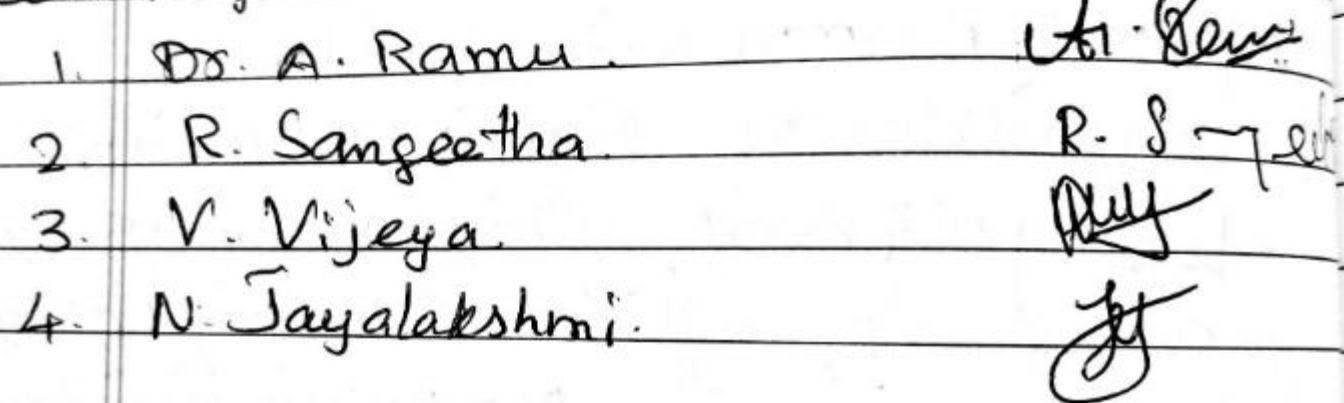 1. Dr. A. Ramu.
2. R. Sangeetha. R. S
3. V. Vijeya.
4. N. Jayalakshmi.